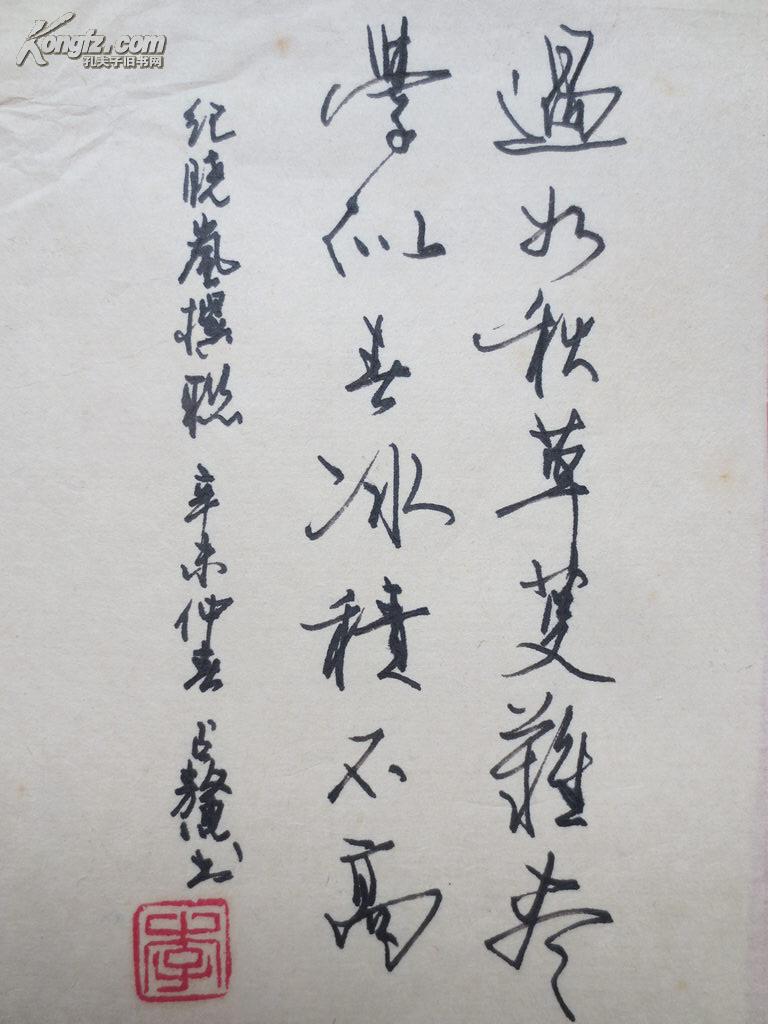 過如秋草芟難盡
學似春冰積不高
纪晓嵐撰聯 辛未仲春 占鰲书
李
Kongfz.com
孔夫子旧书网